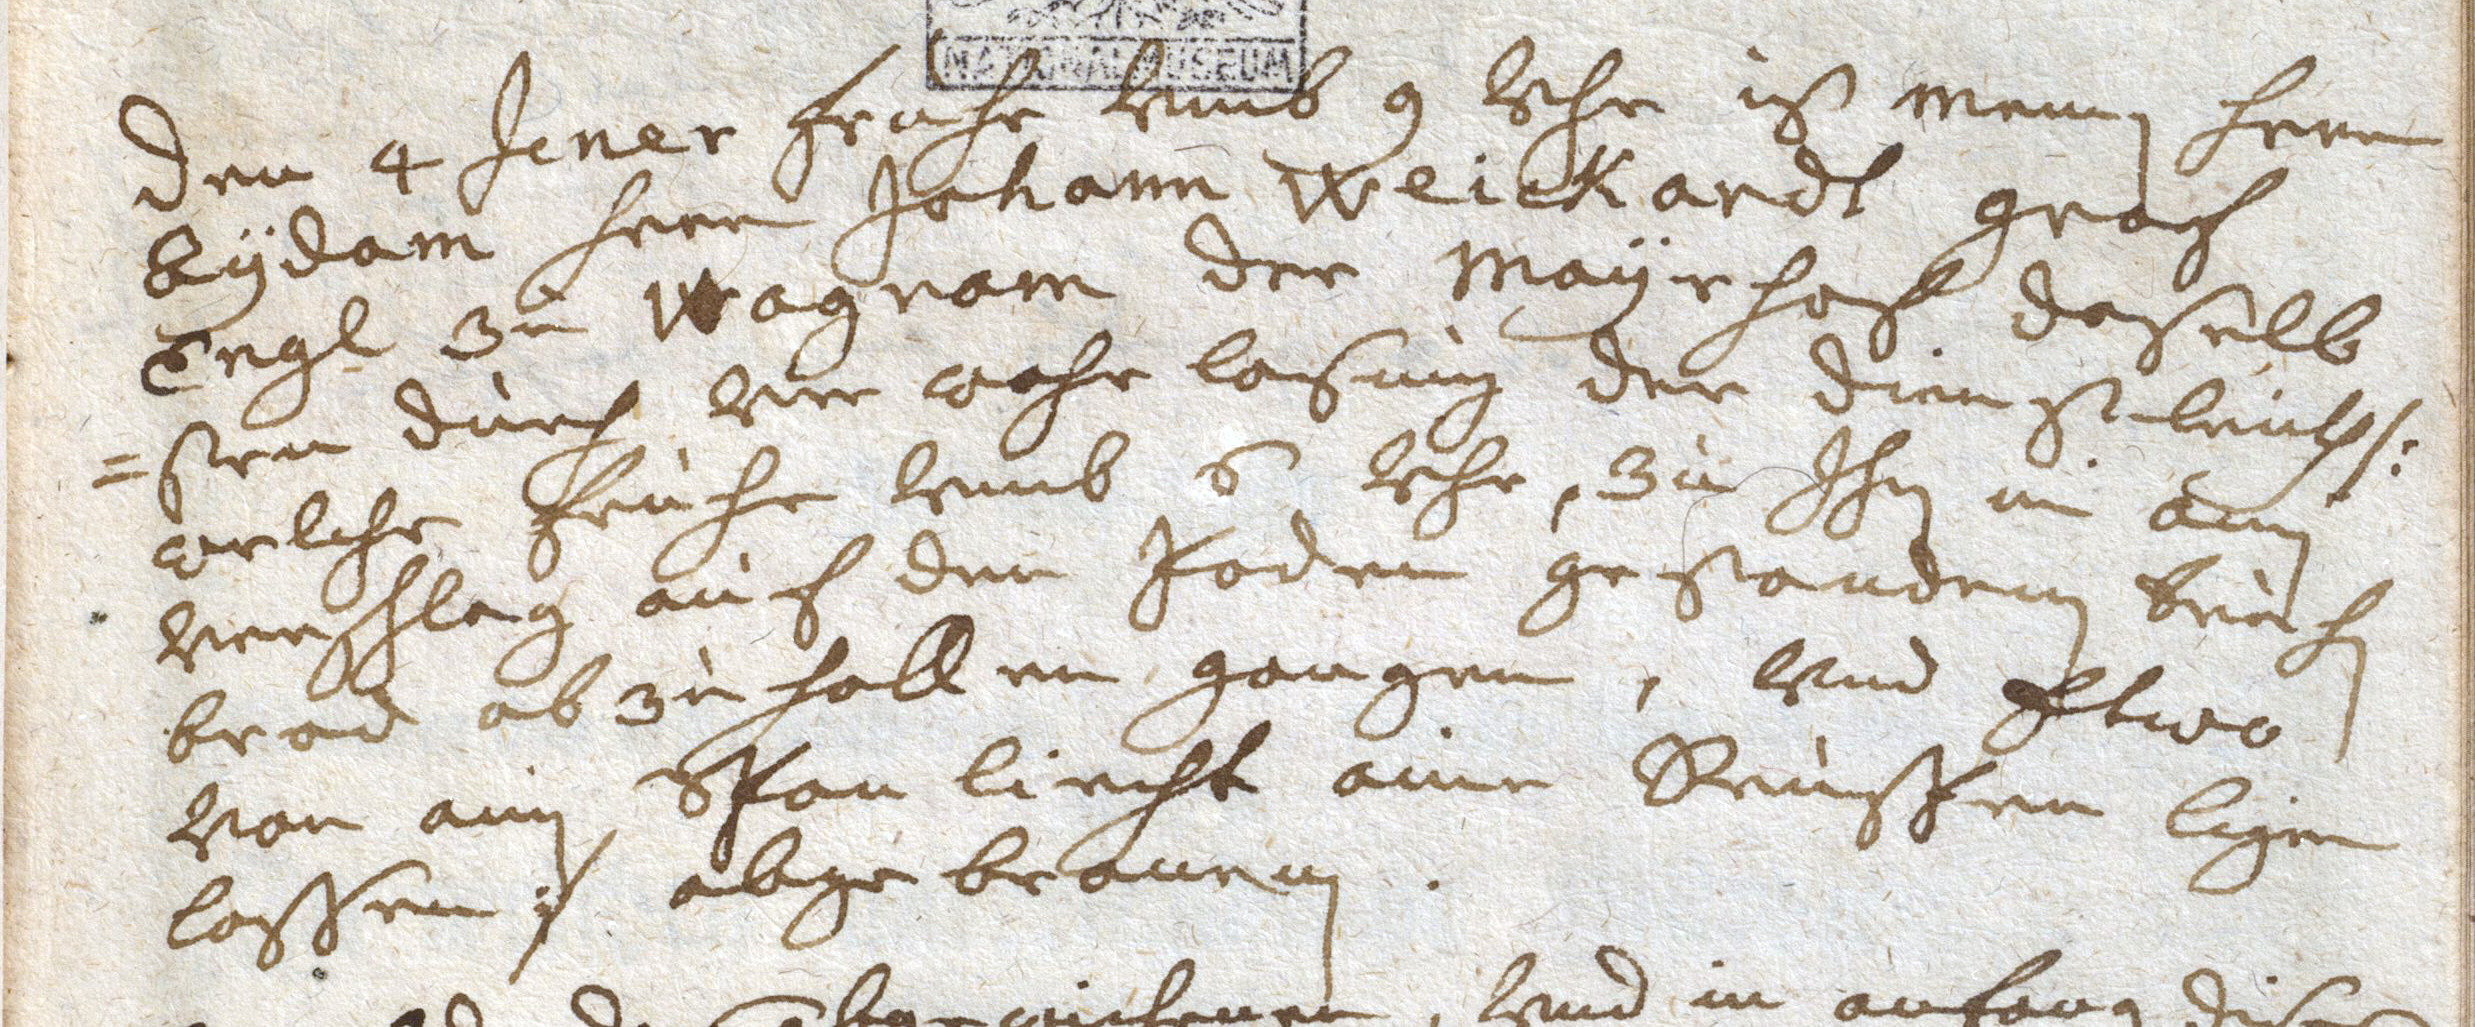 NATIONALMUSEUM
Den 4 Jener fruhe vmb 9 Vhr ist mein herr
Eÿdam herr Johann Weickardt graf
Engl zu Wagram der Maÿrhof daselb
=sten durch ver wahr losung der dienstleuth /:
welche fruhe vmb 6 Vhr, zu Ihn in ain
verschlag auf den Poden gestanden
brod ab zu hollen gangen, vnd Etwo
von ain Span liecht aine ligen
lassen :/ abgebronnen.
vnd in anfang